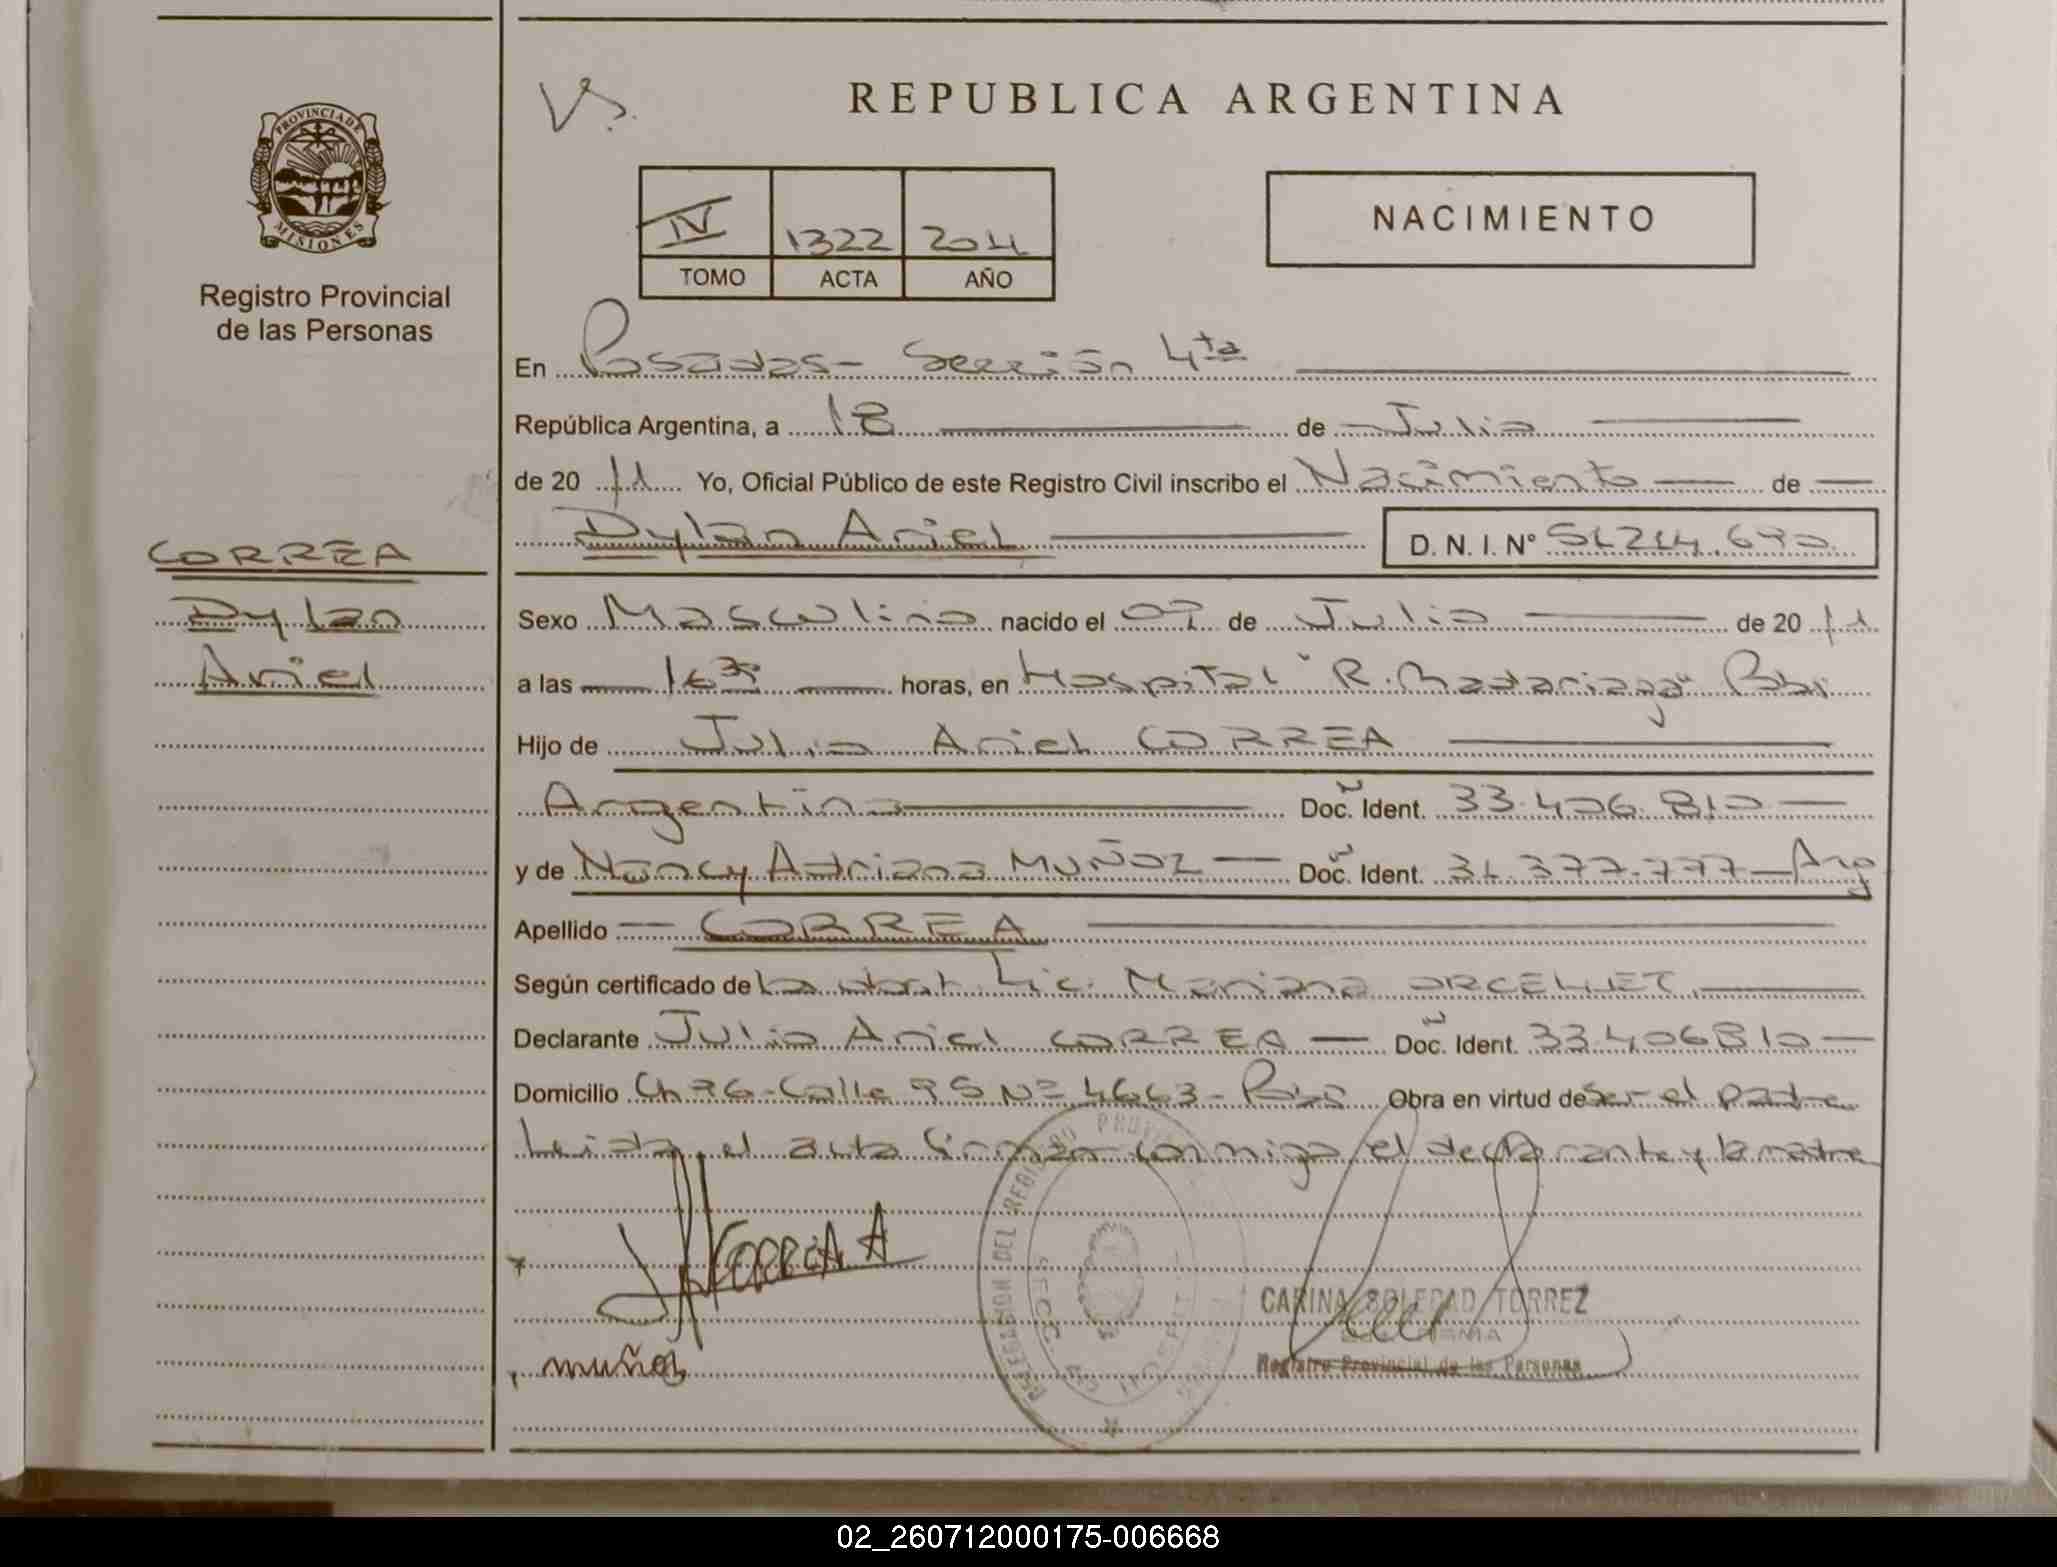 V°
REPUBLICA ARGENTINA
PROVINCIA DE
MISIONES
Registro Provincial
de las Personas
IV 1322 2011
TOMO ACTA AÑO
NACIMIENTO
En Posadas- Sección 4ta
República Argentina, a 18 de Julio
de 20 11 Yo, Oficial Público de este Registro Civil inscribo el Nacimiento de
Dylan Ariel D. N. I. N° 51.214.690
CORREA
Dylan
Ariel
Sexo Masculino nacido el 07 de Julio de 20 11
a las 16 35 horas, en Hospital "R. Madariaga"
Hijo de Julio Ariel CORREA
Argentino Doc. Ident. 33.406.810
y de Nancy Adriana MUÑOZ Doc. Ident. 31.377.777 Arg
Apellido CORREA
Según certificado de la obst. Lic. Mariana ORCELLET
Declarante Julio Ariel CORREA Doc. Ident. 33.406810
Domicilio Ch 96-Calle 95 N° 4663- Pdas Obra en virtud de Ser el padre
Leida el acta firman conmigo el declarante y la madre
CORREA A
CARINA SOLEDAD TORREZ
Registro Provincial de las Personas
muñoz
DELEGACION DEL REGISTRO PROVINCIAL
02_260712000175-006668